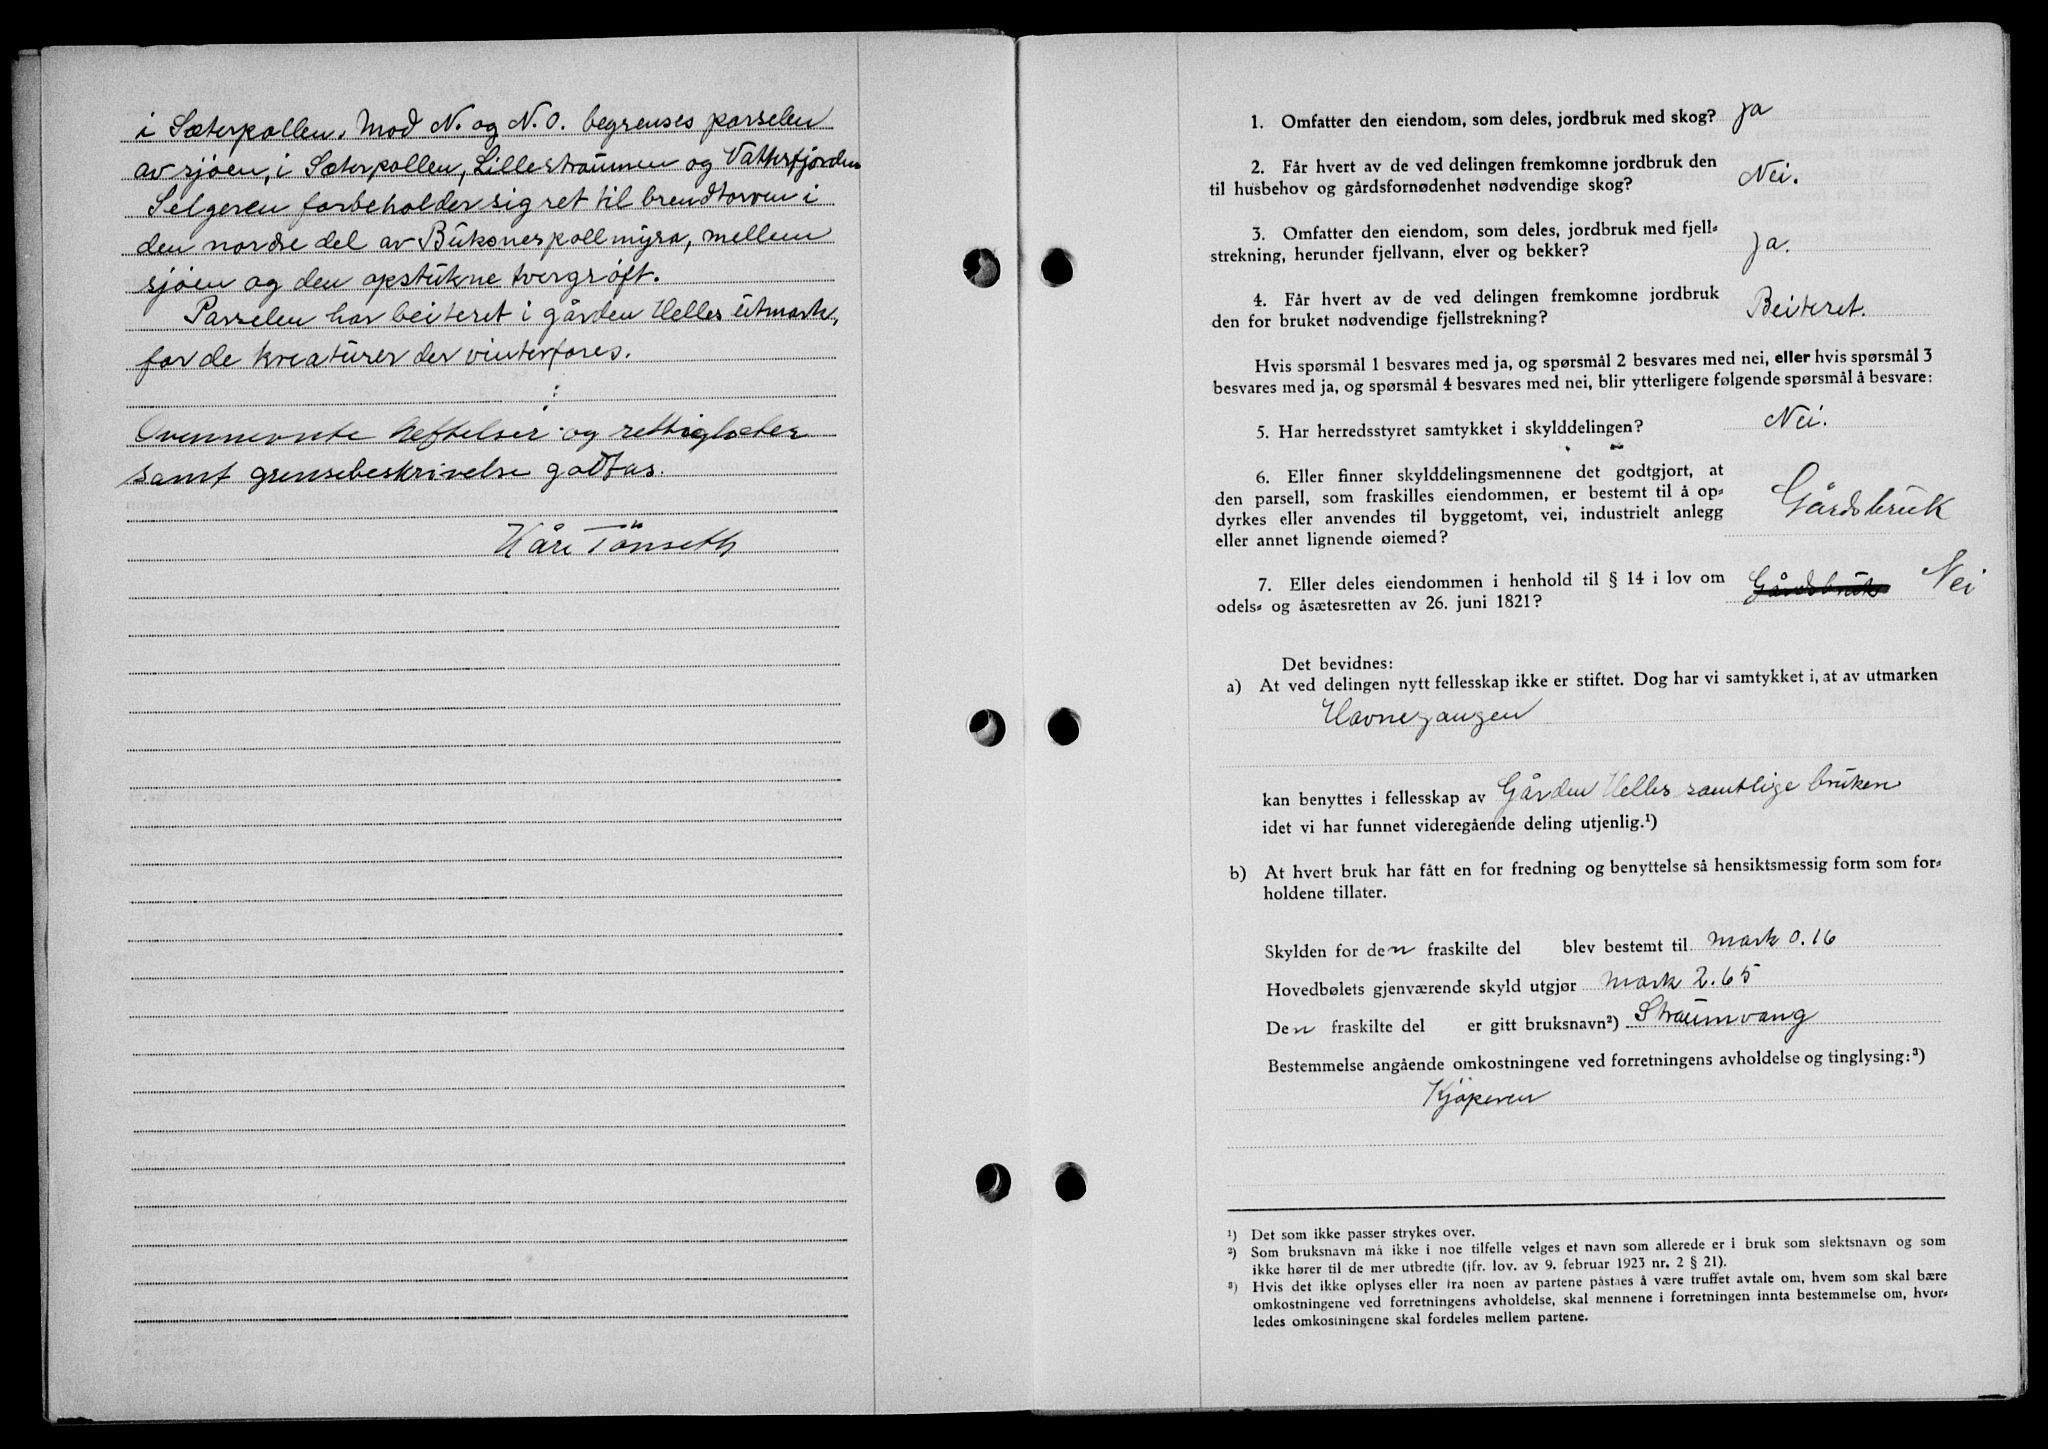 i Sæterpollen. Mod N. og N.O. begrenses parselen
av sjøen, i Sæterpollen, Lillestraumen og Vatterfjorden
Selgeren forbeholder sig ret til brendtorven i
den nordre del av Buksnespollmyra, mellem
sjøen og den opstukne tvergrøft.
Parselen har beiteret i gården Helles utmark,
for de kreaturer der vinterfores.
Ovennevnte heftelser og rettigheter
samt grensebeskrivelse godtas.
Kåre Tönseth
1. Omfatter den eiendom, som deles, jordbruk med skog? Ja
2. Får hvert av de ved delingen fremkomne jordbruk den
til husbehov og gårdsfornødenhet nødvendige skog? Nei.
3. Omfatter den eiendom, som deles, jordbruk med fjell-
strekning, herunder fjellvann, elver og bekker? Ja.
4. Får hvert av de ved delingen fremkomne jordbruk
den for bruket nødvendige fjellstrekning? Beiteret.
Hvis spørsmål 1 besvares med ja, og spørsmål 2 besvares med nei, eller hvis spørsmål 3
besvares med ja, og spørsmål 4 besvares med nei, blir ytterligere følgende spørsmål å besvare:
5. Har herredsstyret samtykket i skylddelingen? Nei.
6. Eller finner skylddelingsmennene det godtgjort, at
den parsell, som fraskilles eiendommen, er bestemt til å op-
dyrkes eller anvendes til byggetomt, vei, industrielt anlegg Gårdsbruk
eller annet lignende øiemed?
7. Eller deles eiendommen i henhold til § 14 i lov om
odels- og åsætesretten av 26. juni 1821? Gårdsbruk Nei
Det bevidnes:
a) At ved delingen nytt fellesskap ikke er stiftet. Dog har vi samtykket i, at av utmarken
Havnegangen
kan benyttes i fellesskap av Gården Helles samtlige bruken
idet vi har funnet videregående deling utjenlig.¹)
b) At hvert bruk har fått en for fredning og benyttelse så hensiktsmessig form som for-
holdene tillater.
Skylden for den fraskilte del blev bestemt til mark 0.16
Hovedbølets gjenværende skyld utgjør mark 2.65
Den fraskilte del er gitt bruksnavn²) Straumvang
Bestemmelse angående omkostningene ved forretningens avholdelse og tinglysing:³)
Kjøperen
¹) Det som ikke passer strykes over.
²) Som bruksnavn må ikke i noe tilfelle velges et navn som allerede er i bruk som slektsnavn og som
ikke hører til de mer utbredte (jfr. lov. av 9. februar 1923 nr. 2 § 21).
³) Hvis det ikke oplyses eller fra noen av partene påstaes å være truffet avtale om, hvem som skal bære
omkostningene ved forretningens avholdelse, skal mennene i forretningen innta bestemmelse om, hvor-
ledes omkostningene skal fordeles mellem partene.